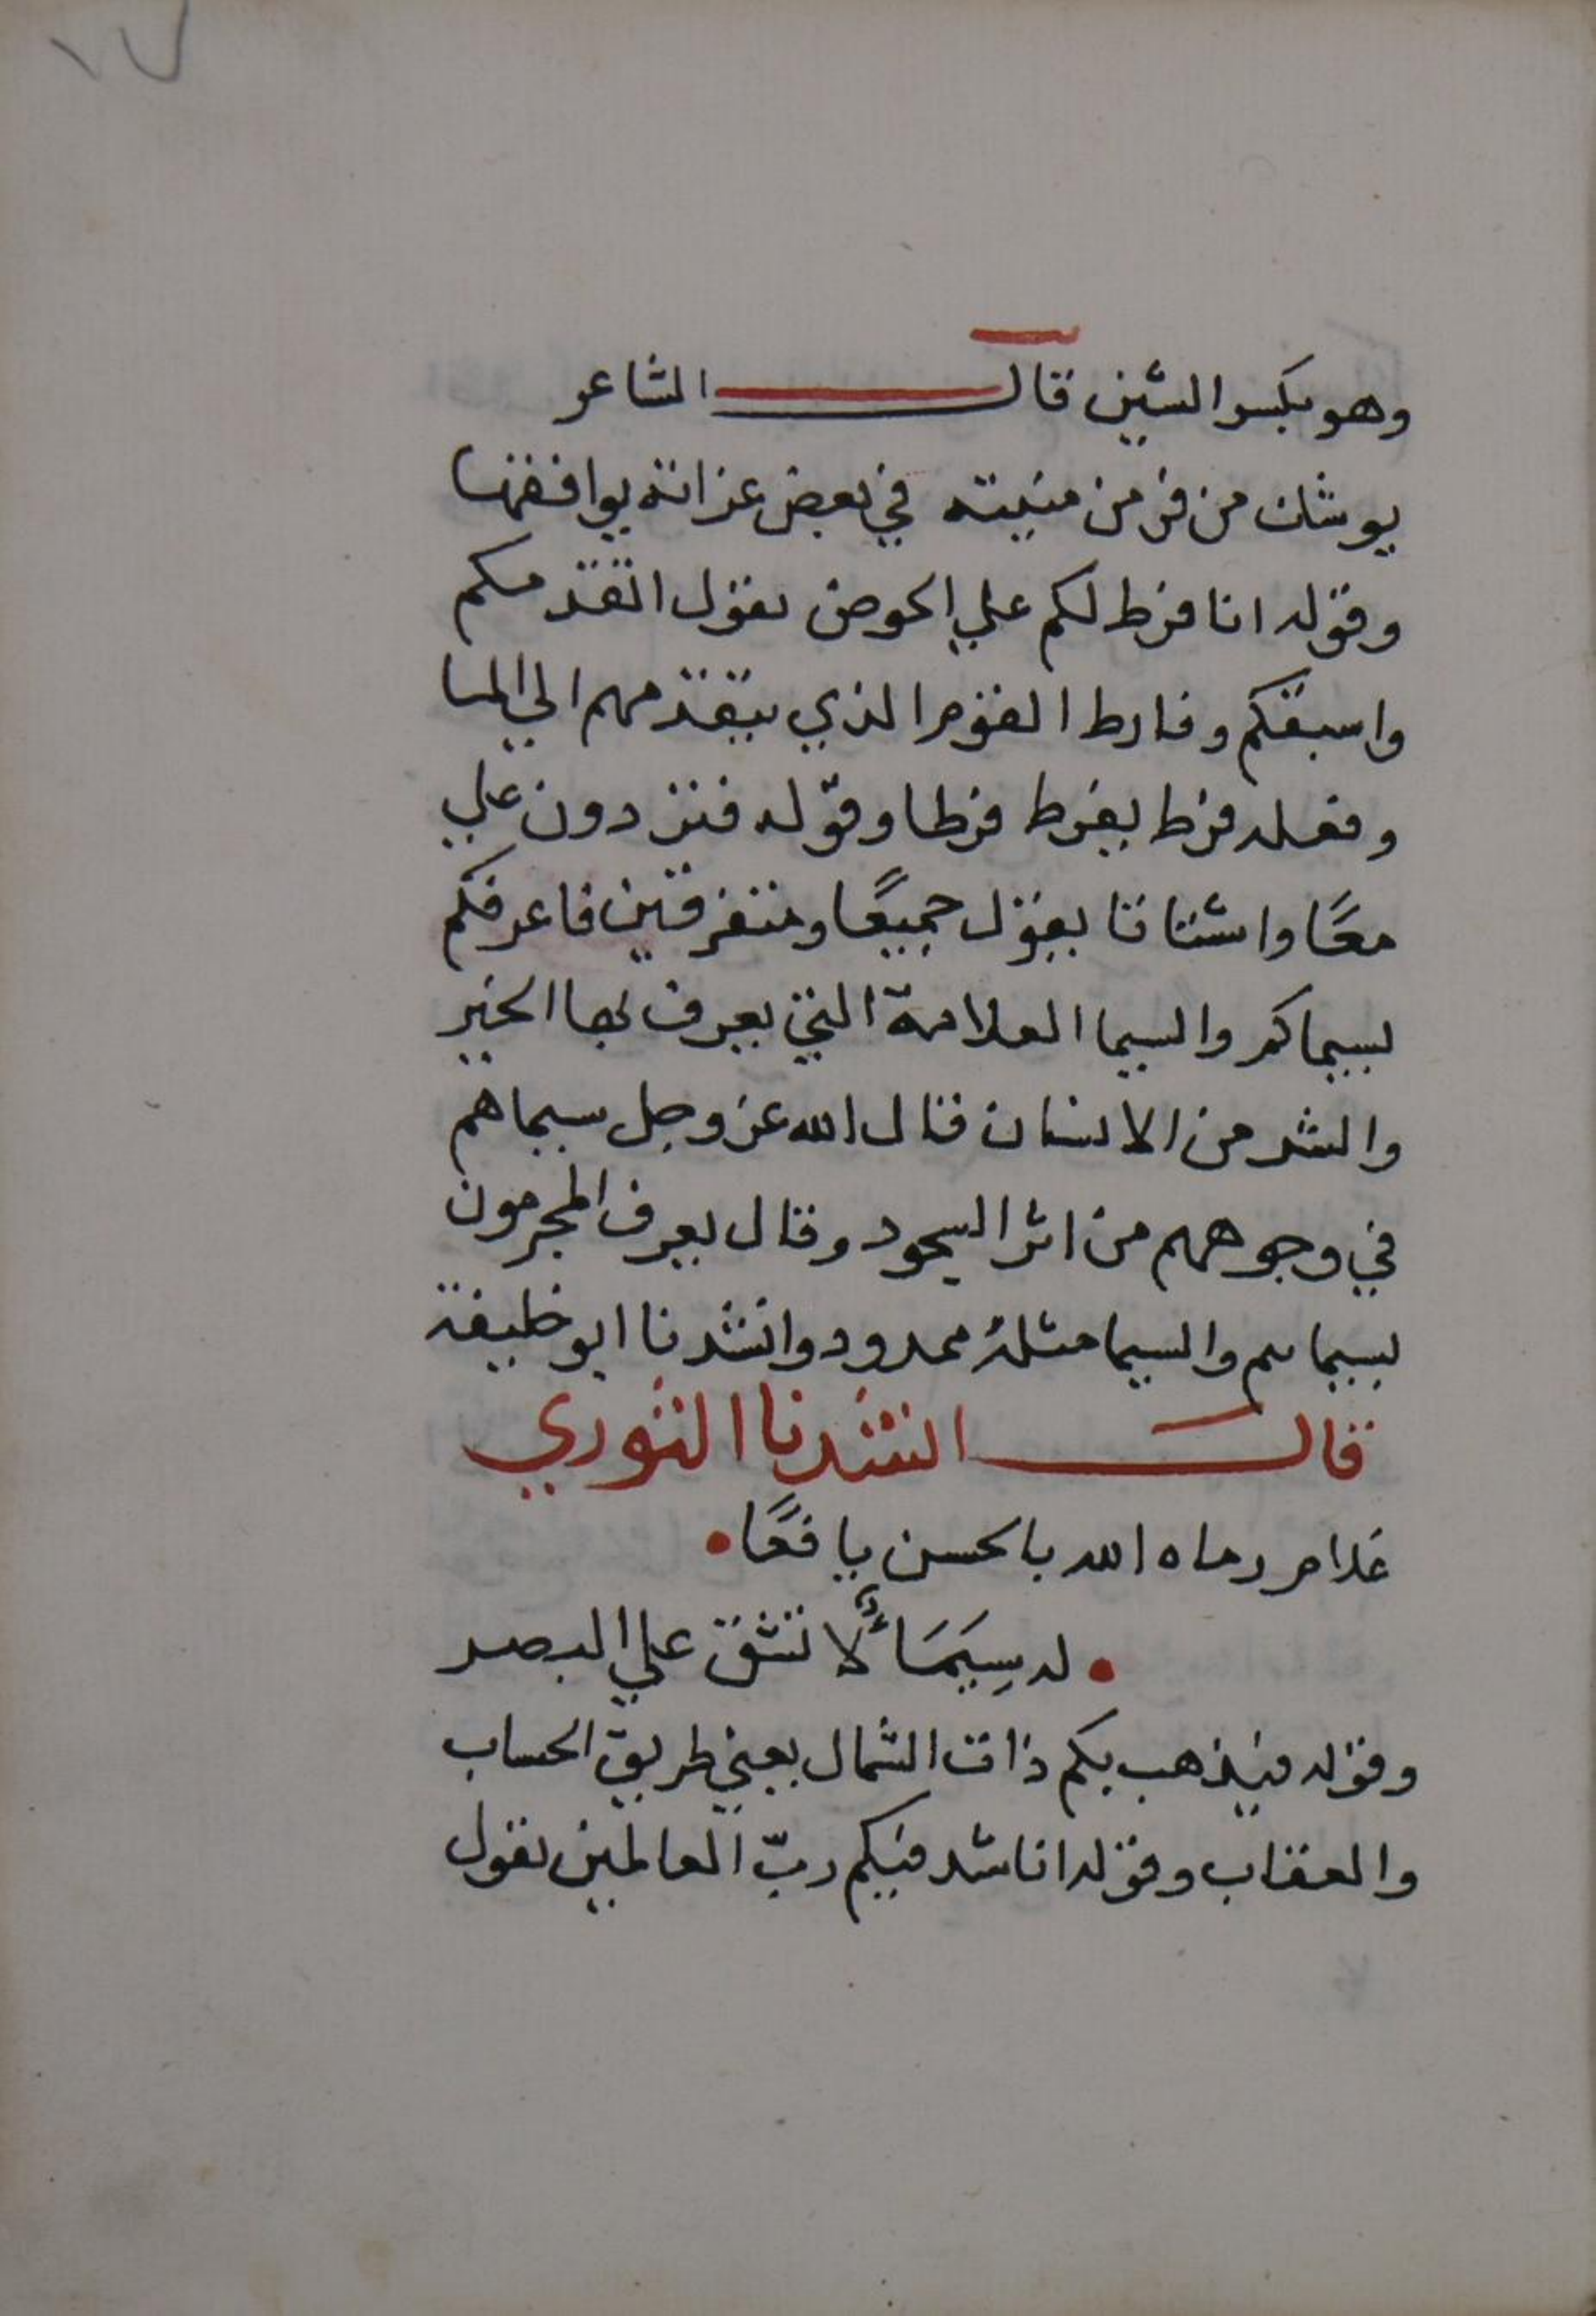 ١٧
وهو بكسر الشين قال الشاعر
يوشك من فر من منيته في بعض غراته يوافقها
وقوله انا فرط لكم علي الحوض يقول اتقدمكم
واسبقكم وفارط القوم الذي يتقدمهم الي الما
وفعله فرط يفرط فرطا وقوله فتردون علي
معًا واشتاتا يقول جميعًا ومتفرقين فاعرفكم
بسيماكم والسيما العلامة التي يعرف بها الخير
والشر من الانسان قال الله عز وجل سيماهم
في وجوههم من اثر السجود وقال يعرف المجرمون
بسيماهم والسيما مثله ممدود وانشدنا ابو خليفة
قال انشدنا التوري
غلام رماه الله بالحسن يافعًا
له سِيمَاءٌ لا تشق علي البصر
وقوله فيذهب بكم ذات الشمال يعني طريق الحساب
والعقاب وقوله اناشد فيكم ربّ العالمين يقول